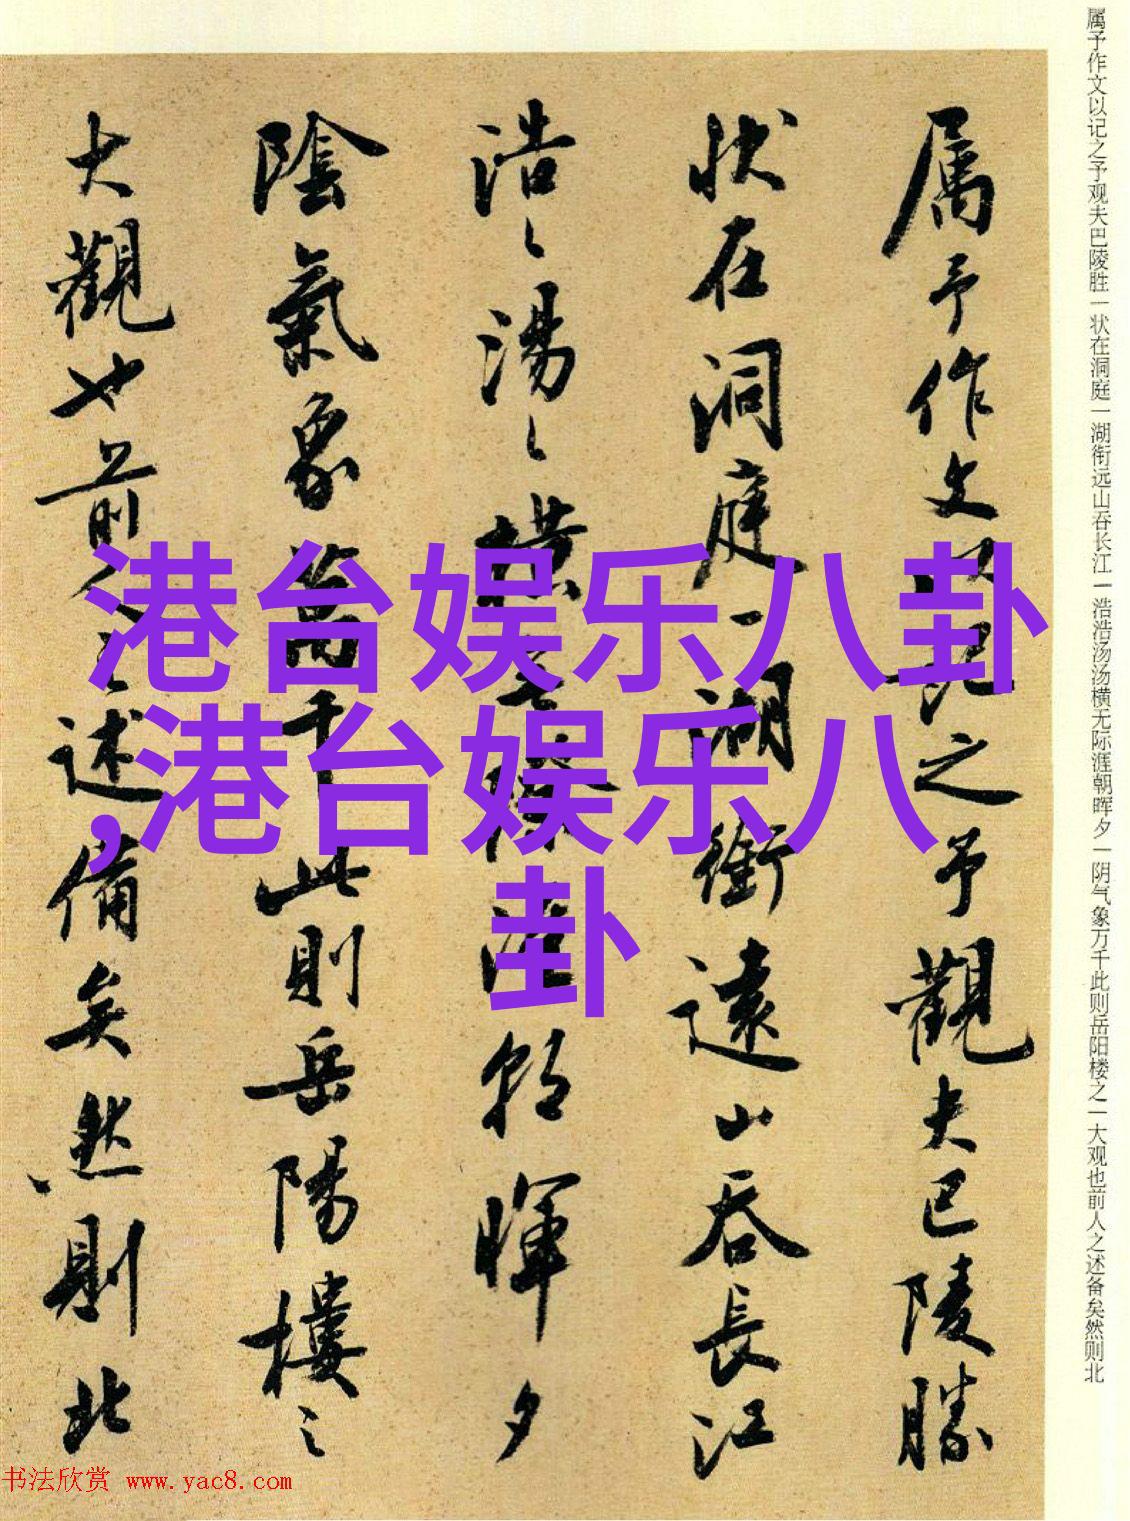 属予作文以记之予观夫巴陵胜一状在洞庭一湖衔远山吞长江一浩浩汤汤横无际涯朝晖夕一阴气象万千此则岳阳楼之一大观也前人之述备矣然则北
属予作文以记之予觀夫巴陵勝
状在洞庭一湖銜遠山吞長江
浩〻湯〻橫無際涯朝暉夕
陰氣象萬千此則岳陽樓之
大觀也前人之述備矣然則北
港台娱乐八卦
,港台娱乐八
卦
书法欣赏 www.yac8.com